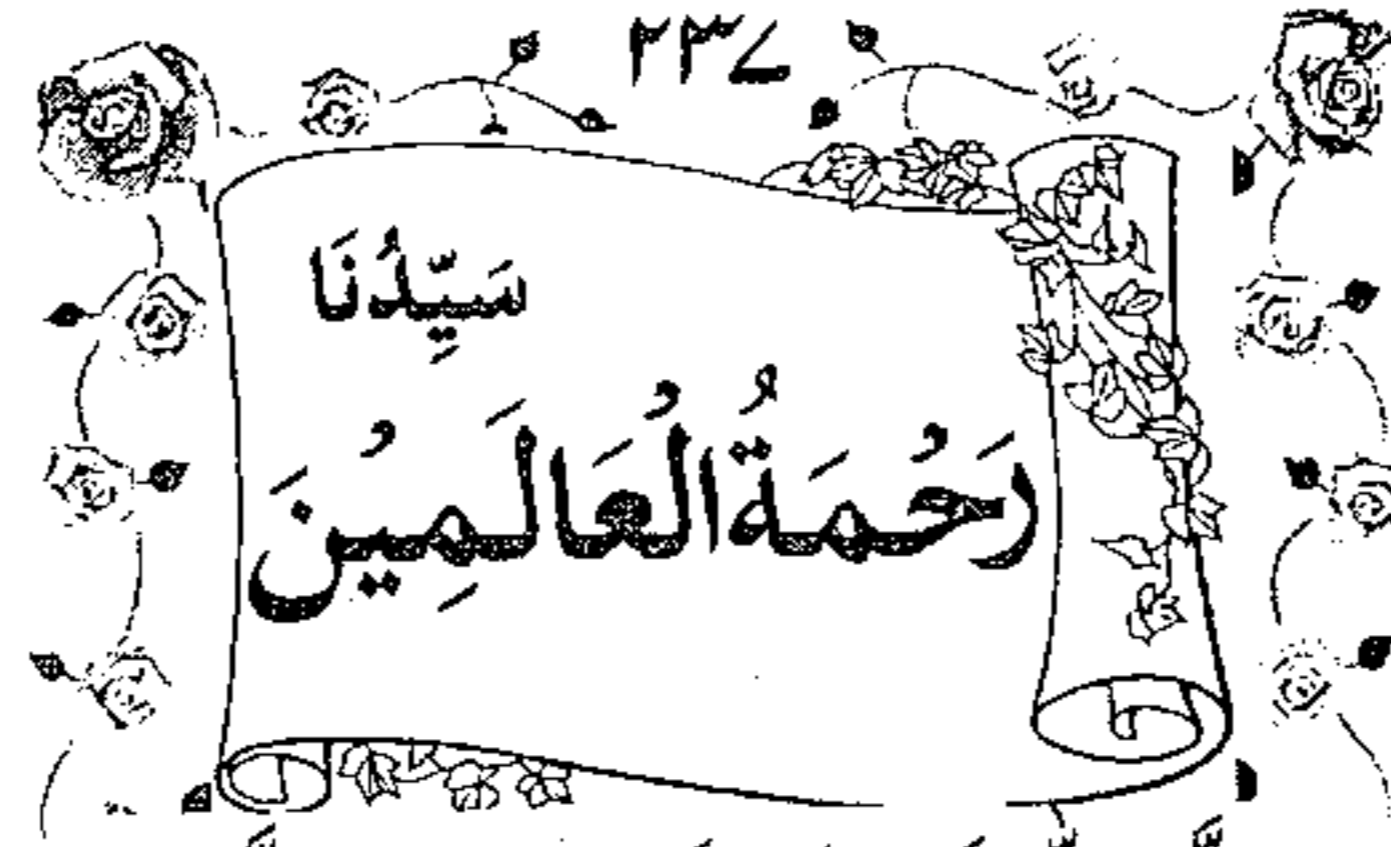 ۲۳۷
سَيِّدُنَا
رَحْمَةُ الْعَالَمِينَ